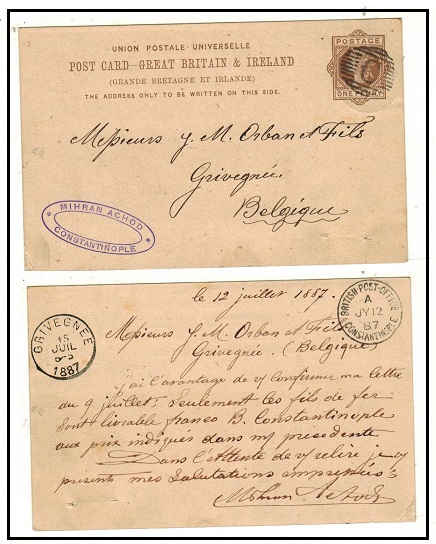 UNION POSTALE UNIVERSELLE
POST CARD—GREAT BRITAIN & IRELAND
(GRANDE BRETAGNE ET IRLANDE)
THE ADDRESS ONLY TO BE WRITTEN ON THIS SIDE.
POSTAGE
ONE PENNY
Messieurs J. M. Orban et Fils
Grivegnée
Belgique
MIHRAN ACHOD
CONSTANTINOPLE
le 12 juillet 1887.
GRIVEGNÉE
15
JUIL
1887
BRITISH-POST-OFFICE
A
JY 12
87
CONSTANTINOPLE
Messieurs J. M. Orban et Fils
Grivegnée. (Belgique)
j'ai l'avantage de vs confirmer ma lettre
du 9 juillet; seulement les fils de fer
sont livrable franco B. Constantinople
aux prix indiqués dans ma présedente
Dans l'Attente de vs relire je vs
présente mes Salutations empressées
Mihran Achod